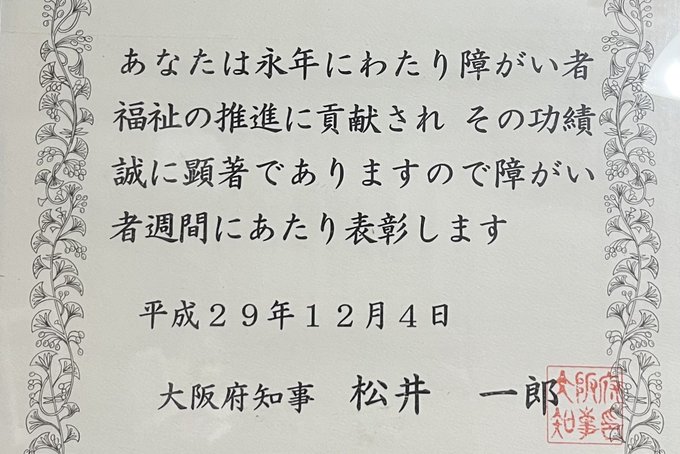 あなたは永年にわたり障がい者
福祉の推進に貢献され その功績
誠に顕著でありますので障がい
者週間にあたり表彰します
平成２９年１２月４日
大阪府知事 松井 一郎
大阪府
知事